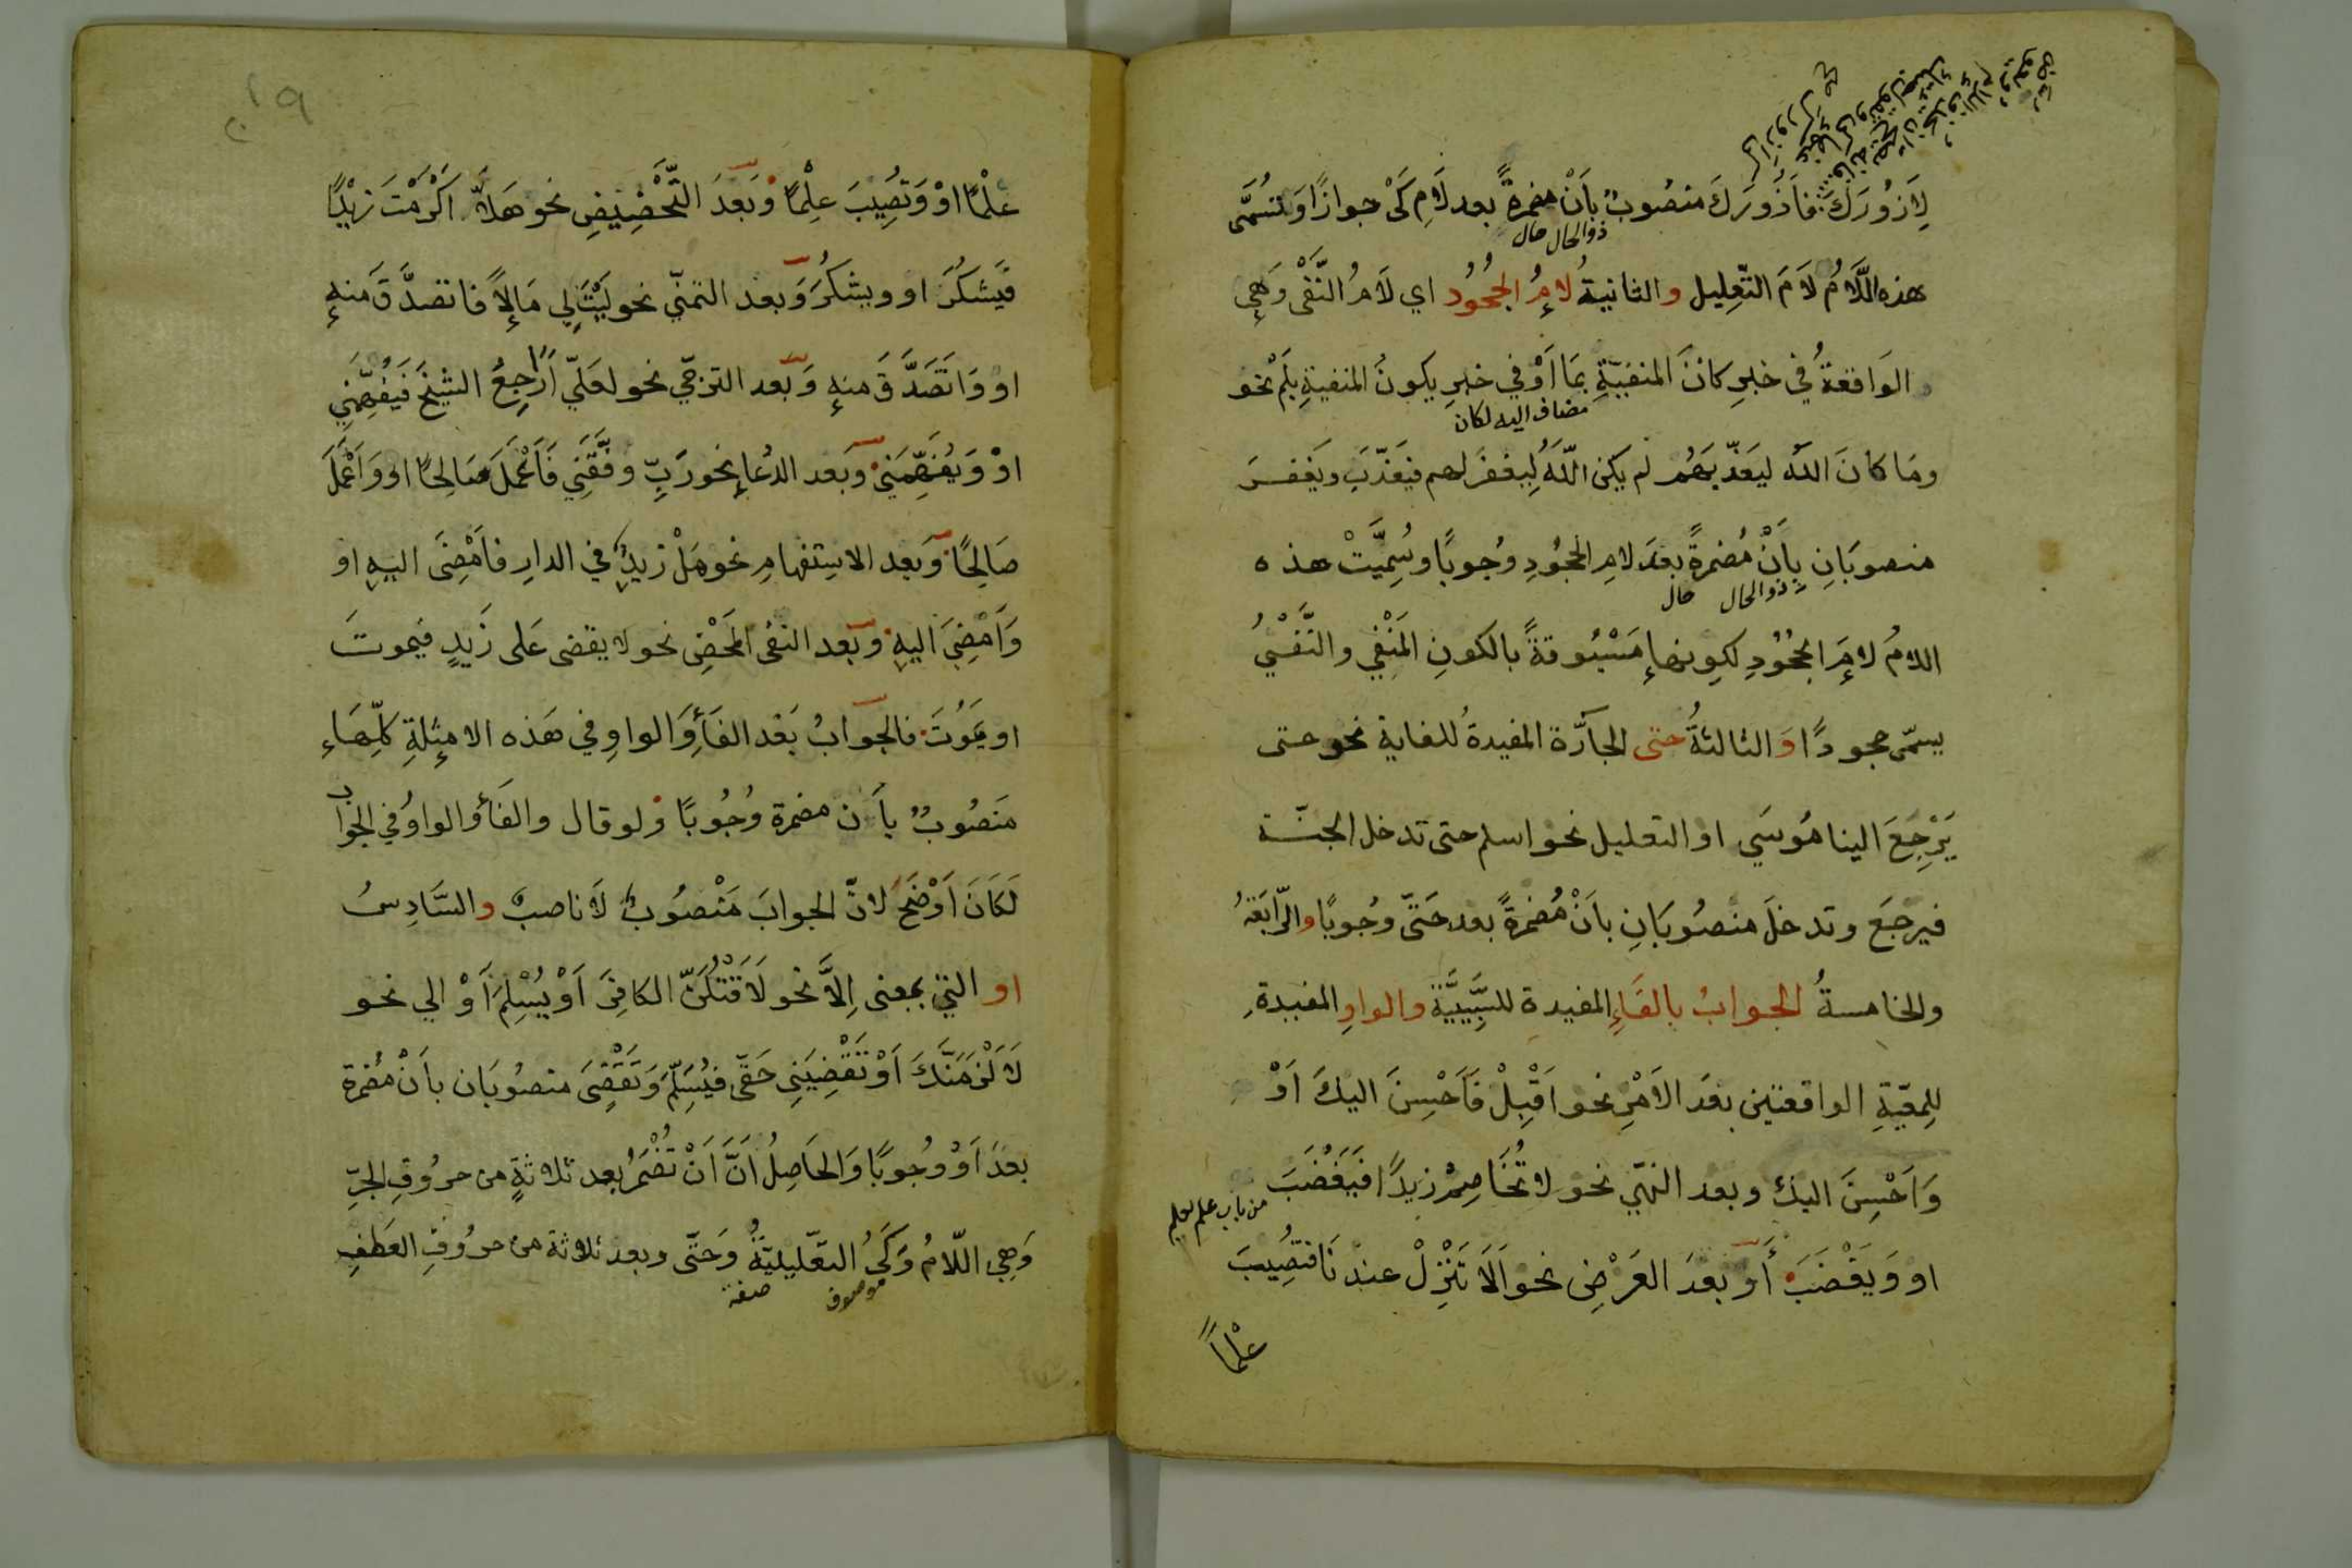 لِاَزُوْرَكَ فاَزُوْرَكَ منصُوبٌ بِاَنْ مضمرةً بعد لَامِ كَىْ جوازًا وَتُسَمَّى
ذوالحال حال
هذه اللَّامُ لَامَ التّعلِيلِ والثانيةُ لامُ الجُحُودِ اي لَامُ النَّفْى وَهِي
الوَاقعةُ في خبرِ كانَ المنفيّةِ بمَا اَوْ في خبرِ يكونُ المنفيةِ بِلَمْ نحو
مضاف اليه لكان
ومَا كانَ اللّه ليعَذّبَهُم لم يكن اللّهُ لِيغفرَ لهم فيعَذّبَ ويَغفرَ
منصوبَانِ بِاَنْ مُضمرةً بعدَ لامِ الجحُودِ وجُوبًا وسُمِيَّتْ هذه
ذوالحال حال
اللامُ لامَ الجُحُودِ لكونِها مَسْبُوقةً بالكونِ المَنْفي والنَّفْىُ
يسمّى جحودًا وَالثالثةُ حتى الجارَّة المفيدةُ للغاية نحو حتى
يَرْجِعَ الينا مُوسَي او التعليل نحو اسلم حتى تدخل الجنّة
فيرجعَ وتدخلَ منصُوبَانِ باَنْ مُضمرةً بعد حَتّى وجُوبًا والرّابَعَةُ
والخامسةُ الجوابُ بالفَاءِ المفيدة للسَّبَبِيَّةِ والواوِ المفيدةِ
لِلمِعَيّةِ الواقعتين بعدَ الاَمْرِ نحو اَقْبِلْ فَاَحْسِنَ اليكَ اَوْ
وَاَحْسِنَ اليك وبعد النهّي نحو لا تُخَاصِمْ زيدًا فيَغْضَبَ
من باب علم يعلم
او وَيَغْضَبَ اَوْ بعدَ العَرْضِ نحو اَلَا تَنْزِلْ عندنَا فتصُيبَ
علْمًا
١٩
علْمًا اوْ وَتصُيِبَ عِلْمًا وَبَعدَ التَّحْضِيضِ نحو هَلَّا اَكْرَمْتَ زَيْدًا
فيَشكُرَ او ويشكُرَ وَبعد التمنّي نحو لَيْتَ لِي مَالًا فاتصدَّقَ منهِ
او وَاتَصَدَّقَ منهِ وَبعد الترجّي نحو لعَلّي اُرَاجِعُ الشيخَ فَيُفَهِّمَنِي
اوْ وَيُفَهِّمَنِي وبَعد الدُعَاءِ نحو رَبِّ وفَّقَنِي فَاَعْمَلَ صَالِحًا او وَاَعْمَلَ
صَالِحًا وَبعد الاستِفهامِ نحو هَلْ زيدٌ في الدارِ فاَمْضِىَ اليهِ او
وَاَمْضِيَ اليهِ وبَعد النفى المَحْضِ نحو لا يقضى عَلى زَيدٍ فيموتَ
او يَمَوُتَ فالجَوابُ بَعْد الفَأءِ وَالواوِ في هَذه الامثِلةِ كلِّهَا
منَصُوبٌ باَن مضمرة وُجُوبًا ولو قال والفَأءُ والواوُ في الجوَاب
لَكَانَ اَوْضَحَ لانّ الجوابَ مَنْصُوبٌ لَا ناصبٌ والسَّادِسُ
او التي بمعنى اِلَّا نحو لَاَقْتُلَنَّ الكافِرَ اَوْ يُسْلِمَ اَوْ الي نحو
لَاَلْزِمَنَّكَ اَوْ تَقْضِيَنِى حَقّى فيُسْلِمَ وَتَقْضِىَ منصُوبَان باَنْ مُضمرة
بعدَ اَوْ وُجُوبًا وَالحَاصِلُ اَنَّ اَنْ تُضْمَرُ بعد ثلاثةٍ من حرُوُفِ الجرِّ
وَهِي اللّامُ وَكَىُ التعّليليّةُ وَحَتّى وبعد ثلاثة من حرُوُفِ العَطفِ
موصوف صفة